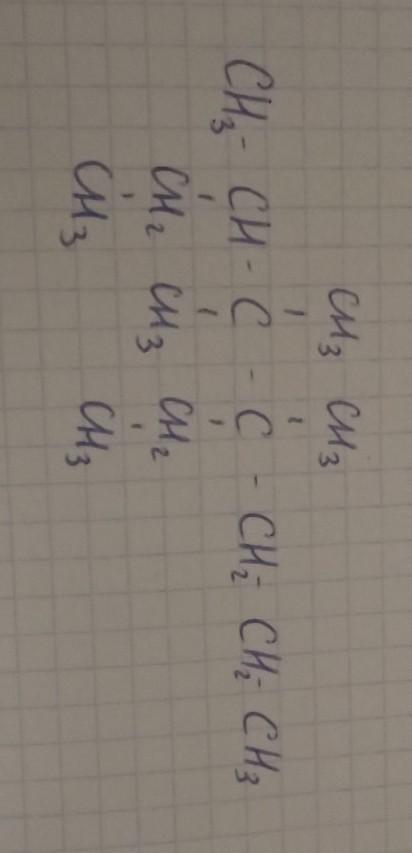 CH₃ CH₃
CH₃ - CH - C - C - CH₂ - CH₂ - CH₃
CH₂ CH₃ CH₂
CH₃ CH₃